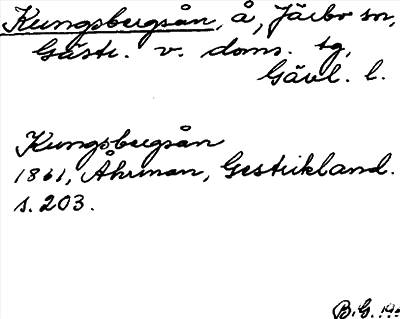 Kungsbergsån, å, Järbo sn,
Gästr. v. doms. tg,
Gävl. l.
Kungsbergsån
1861, Åhrman, Gestrikland.
s. 203.
B.G. 19